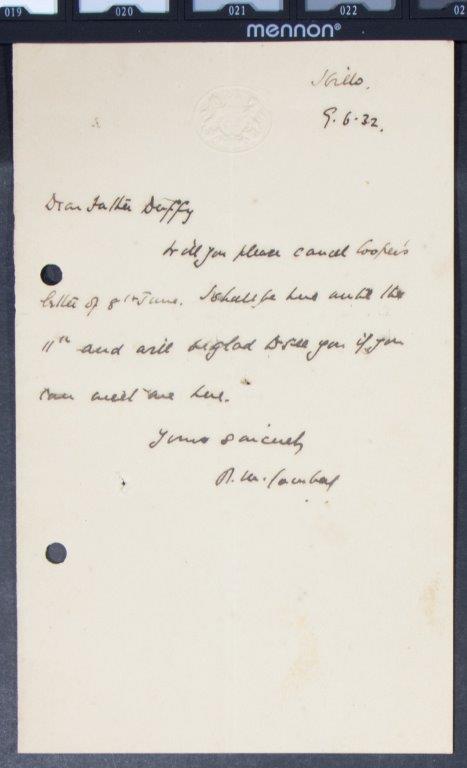 019 020 021 022 02
mennon®
9.6.32.
Dear Father Duffy
Will you please cancel Cooper's
letter of 8th June. I shall be here until the
11th and will be glad to see you if you
can meet me here.
Yours sincerely